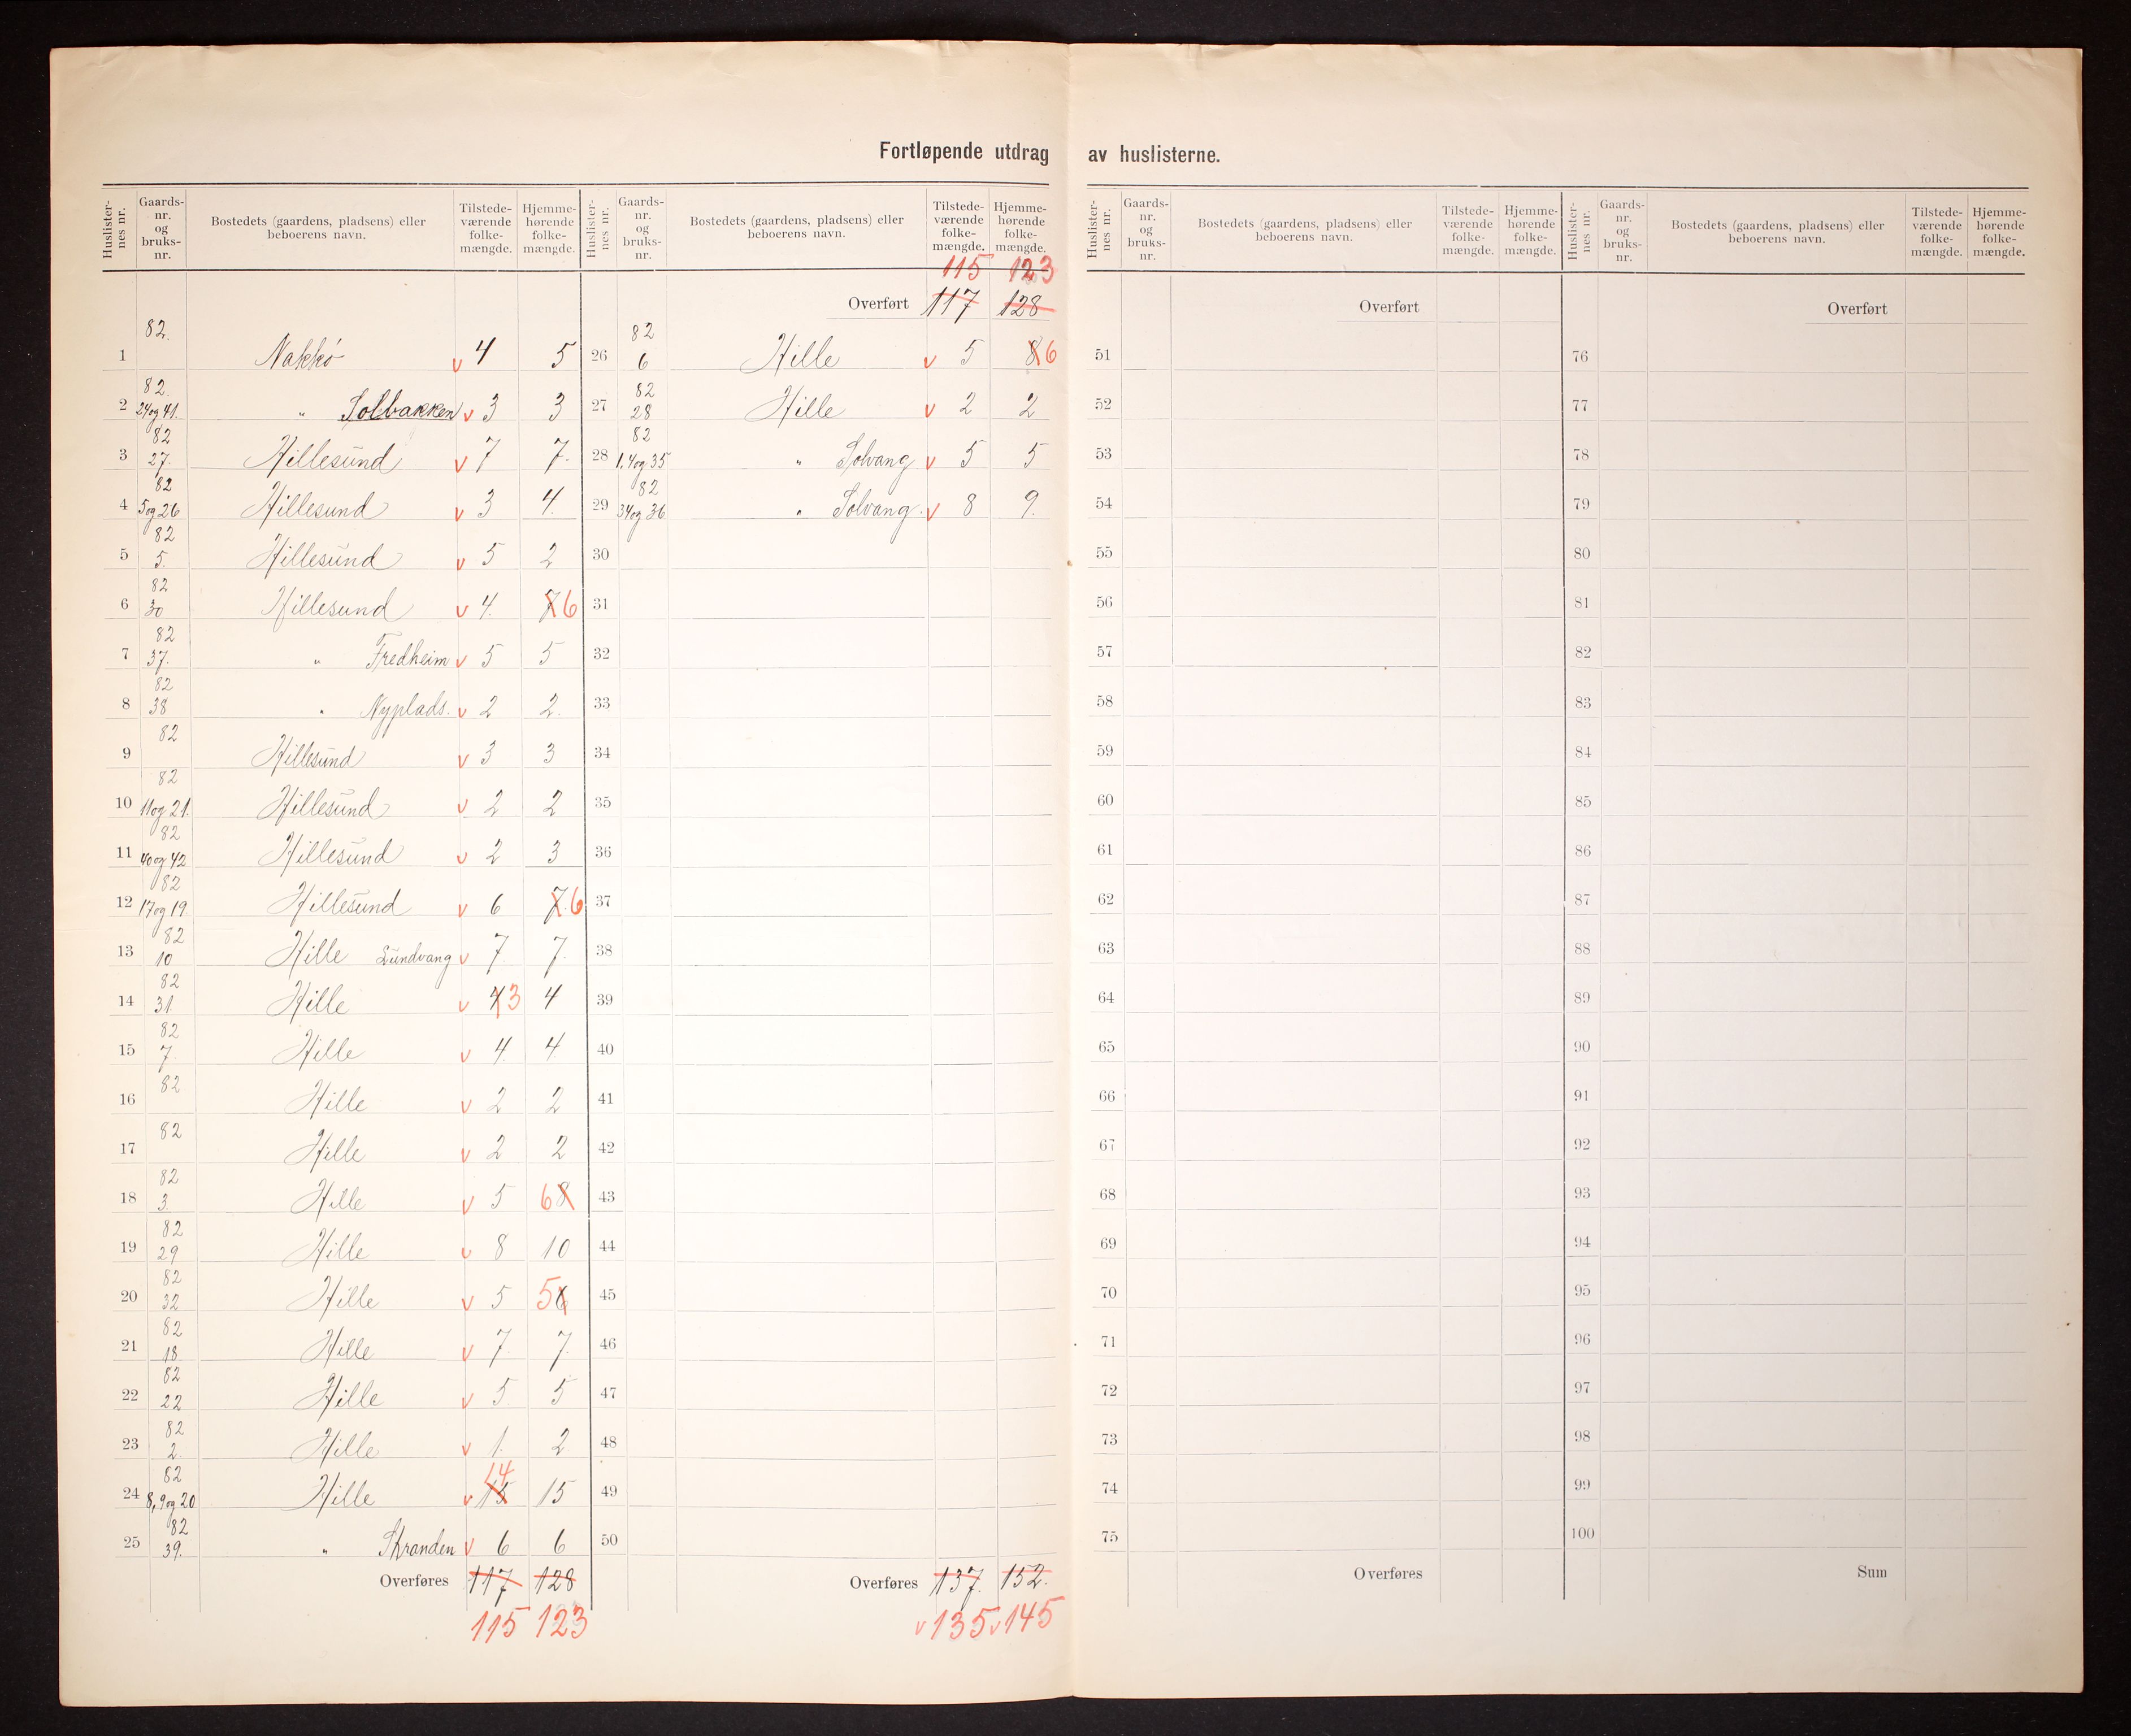 Fortløpende utdrag av huslisterne.
Huslister-nes nr. Gaards-nr. og bruks-nr. Bostedets (gaardens, pladsens) eller beboerens navn. Tilstede-værende folke-mængde. Hjemme-hørende folke-mængde.
1 82. Nakkö v 4 5
2 82. 24 og 41. " Solbakken v 3 3
3 82 27. Hillesund v 7 7.
4 82 5 og 26 Hillesund v 3 4.
5 82 5. Hillesund v 5 2
6 82 30 Hillesund v 4. 7 6
7 82 37. " Fredheim v 5 5
8 82 38 " Nyplads. v 2 2.
9 82 Hillesund v 3 3
10 82 11 og 21. Hillesund v 2 2
11 82 40 og 42 Hillesund v 2 3
12 82 17 og 19. Hillesund v 6 7. 6
13 82 10 Hille Sundvang v 7 7.
14 82 31 Hille v 4 3 4
15 82 7. Hille v 4. 4
16 82 Hille v 2 2
17 82 Hille v 2 2
18 82 3. Hille v 5 6 8
19 82 29 Hille v 8 10
20 82 32 Hille v 5 5 6
21 82 18 Hille v 7. 7.
22 82 22 Hille v 5 5
23 82 2 Hille v 1. 2
24 82 8, 9 og 20 Hille v 14 15 15
25 82 39. " Stranden v 6 6
Overføres 117 128
115 123
Huslister-nes nr. Gaards-nr. og bruks-nr. Bostedets (gaardens, pladsens) eller beboerens navn. Tilstede-værende folke-mængde. Hjemme-hørende folke-mængde.
115 123
Overført 117 128
26 82 6 Hille v 5 8 6
27 82 28 Hille v 2 2
28 82 1, 4 og 35 " Solvang v 5 5
29 82 34 og 36 " Solvang. v 8 9.
30
31
32
33
34
35
36
37
38
39
40
41
42
43
44
45
46
47
48
49
50
Overføres 137. 152.
v 135 v 145
Huslister-nes nr. Gaards-nr. og bruks-nr. Bostedets (gaardens, pladsens) eller beboerens navn. Tilstede-værende folke-mængde. Hjemme-hørende folke-mængde.
Overført
51
52
53
54
55
56
57
58
59
60
61
62
63
64
65
66
67
68
69
70
71
72
73
74
75
Overføres
Huslister-nes nr. Gaards-nr. og bruks-nr. Bostedets (gaardens, pladsens) eller beboerens navn. Tilstede-værende folke-mængde. Hjemme-hørende folke-mængde.
Overført
76
77
78
79
80
81
82
83
84
85
86
87
88
89
90
91
92
93
94
95
96
97
98
99
100
Sum